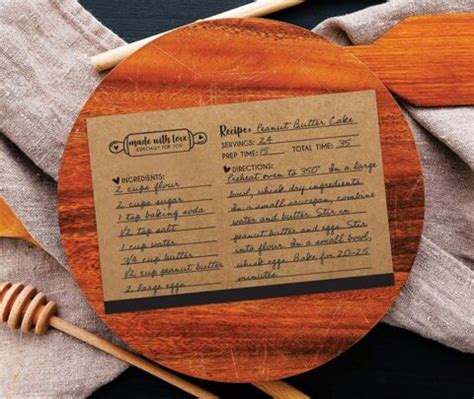 made with love
ESPECIALLY FOR YOU
Recipe: Peanut Butter Cake
SERVINGS: 24
PREP TIME: 15 TOTAL TIME: 35
INGREDIENTS:
2 cups flour
2 cups sugar
1 tsp baking soda
1/2 tsp salt
1 cup water
3/4 cup butter
1/2 cup peanut butter
2 large eggs
DIRECTIONS:
Preheat oven to 350° In a large
bowl, whisk dry ingredients.
In a small saucepan, combine
water and butter. Stir in
peanut butter and eggs. Stir
into flour. In a small bowl,
whisk eggs. Bake for 20-25
minutes